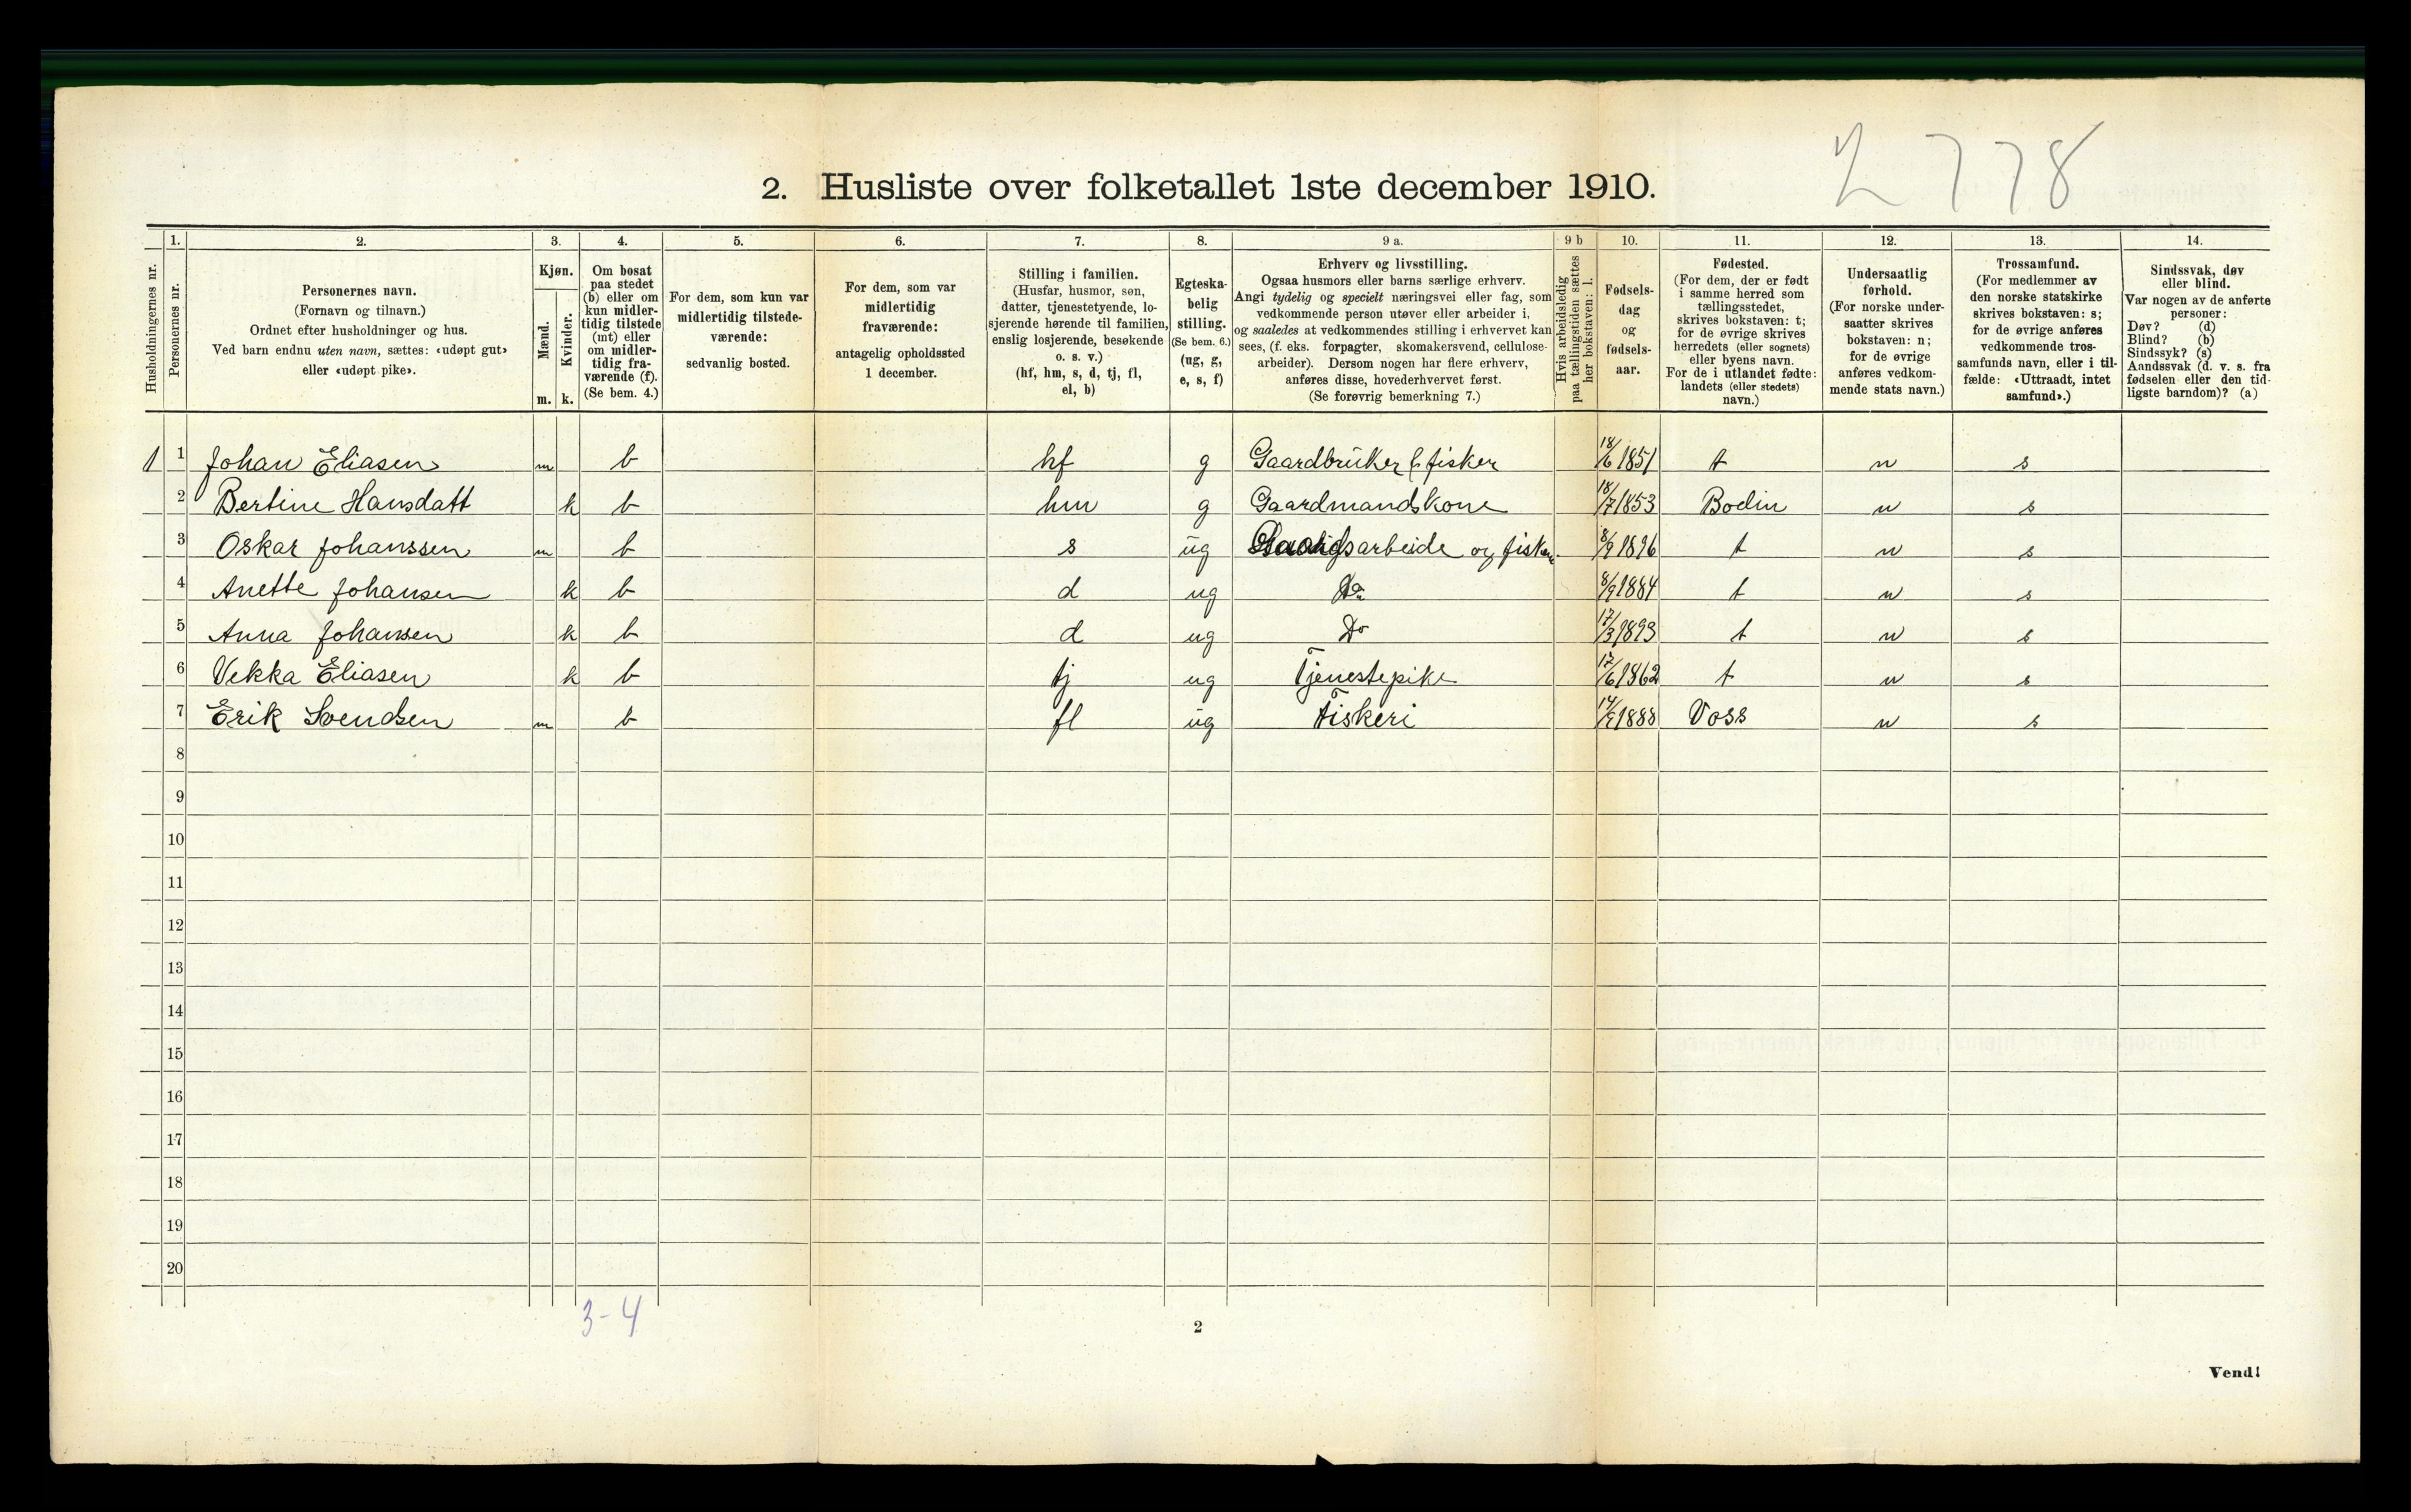 2778
2. Husliste over folketallet 1ste december 1910.
1. 2. 3. 4. 5. 6. 7. 8. 9 a. 9 b 10. 11. 12. 13. 14.
Husholdningernes nr.
Personernes nr.
Personernes navn.
(Fornavn og tilnavn.)
Ordnet efter husholdninger og hus.
Ved barn endnu uten navn, sættes: «udøpt gut»
eller «udøpt pike».
Kjøn.
Mænd.
Kvinder.
m. k.
Om bosat
paa stedet
(b) eller om
kun midler-
tidig tilstede
(mt) eller
om midler-
tidig fra-
værende (f).
(Se bem. 4.)
For dem, som kun var
midlertidig tilstede-
værende:
sedvanlig bosted.
For dem, som var
midlertidig
fraværende:
antagelig opholdssted
1 december.
Stilling i familien.
(Husfar, husmor, søn,
datter, tjenestetyende, lo-
sjerende hørende til familien,
enslig losjerende, besøkende
o. s. v.)
(hf, hm, s, d, tj, fl,
el, b)
Egteska-
belig
stilling.
(Se bem. 6.)
(ug, g,
e, s, f)
Erhverv og livsstilling.
Ogsaa husmors eller barns særlige erhverv.
Angi tydelig og specielt næringsvei eller fag, som
vedkommende person utøver eller arbeider i,
og saaledes at vedkommendes stilling i erhvervet kan
sees, (f. eks. forpagter, skomakersvend, cellulose-
arbeider). Dersom nogen har flere erhverv,
anføres disse, hovederhvervet først.
(Se forøvrig bemerkning 7.)
Hvis arbeidsledig
paa tællingstiden sættes
her bokstaven: l.
Fødsels-
dag
og
fødsels-
aar.
Fødested.
(For dem, der er født
i samme herred som
tællingsstedet,
skrives bokstaven: t;
for de øvrige skrives
herredets (eller sognets)
eller byens navn.
For de i utlandet fødte:
landets (eller stedets)
navn.)
Undersaatlig
forhold.
(For norske under-
saatter skrives
bokstaven: n;
for de øvrige
anføres vedkom-
mende stats navn.)
Trossamfund.
(For medlemmer av
den norske statskirke
skrives bokstaven: s;
for de øvrige anføres
vedkommende tros-
samfunds navn, eller i til-
fælde: «Uttraadt, intet
samfund».)
Sindssvak, døv
eller blind.
Var nogen av de anførte
personer:
Døv? (d)
Blind? (b)
Sindssyk? (s)
Aandssvak (d. v. s. fra
fødselen eller den tid-
ligste barndom)? (a)
1 1 Johan Eliasen m b hf g Gaardbruker & fisker 18/6 1851 t n s
2 Bertine Hansdatt k b hm g Gaardmandskone 18/7 1853 Bodin n s
3 Oskar Johanssen m b s ug Gaardsarbeide og fisker 8/9 1896 t n s
4 Anette Johansen k b d ug Do 8/9 1884 t n s
5 Anna Johansen k b d ug Do 17/3 1893 t n s
6 Vekka Eliasen k b tj ug Tjenestepike 17/6 1862 t n s
7 Erik Svendsen m b fl ug Fiskeri 1888 Voss n s
8
9
10
11
12
13
14
15
16
17
18
19
20
3-4
2
Vend!